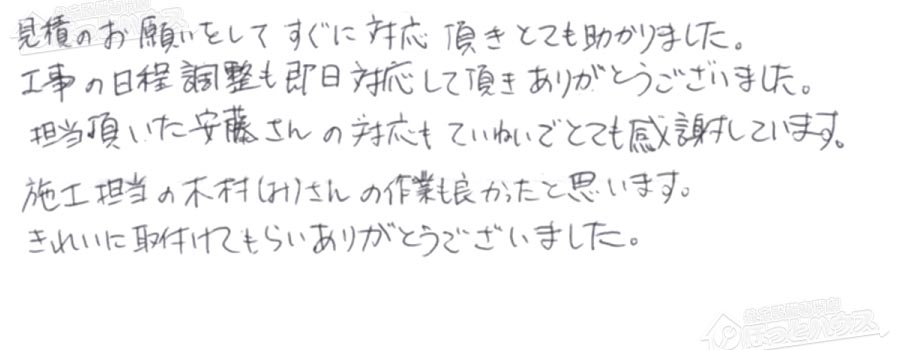 見積のお願いをしてすぐに対応頂きとても助かりました。
工事の日程調整も即日対応して頂きありがとうございました。
担当頂いた安藤さんの対応もていねいでとても感謝しています。
施工担当の木村(み)さんの作業も良かったと思います。
きれいに取付けてもらいありがとうございました。
ほっとハウス